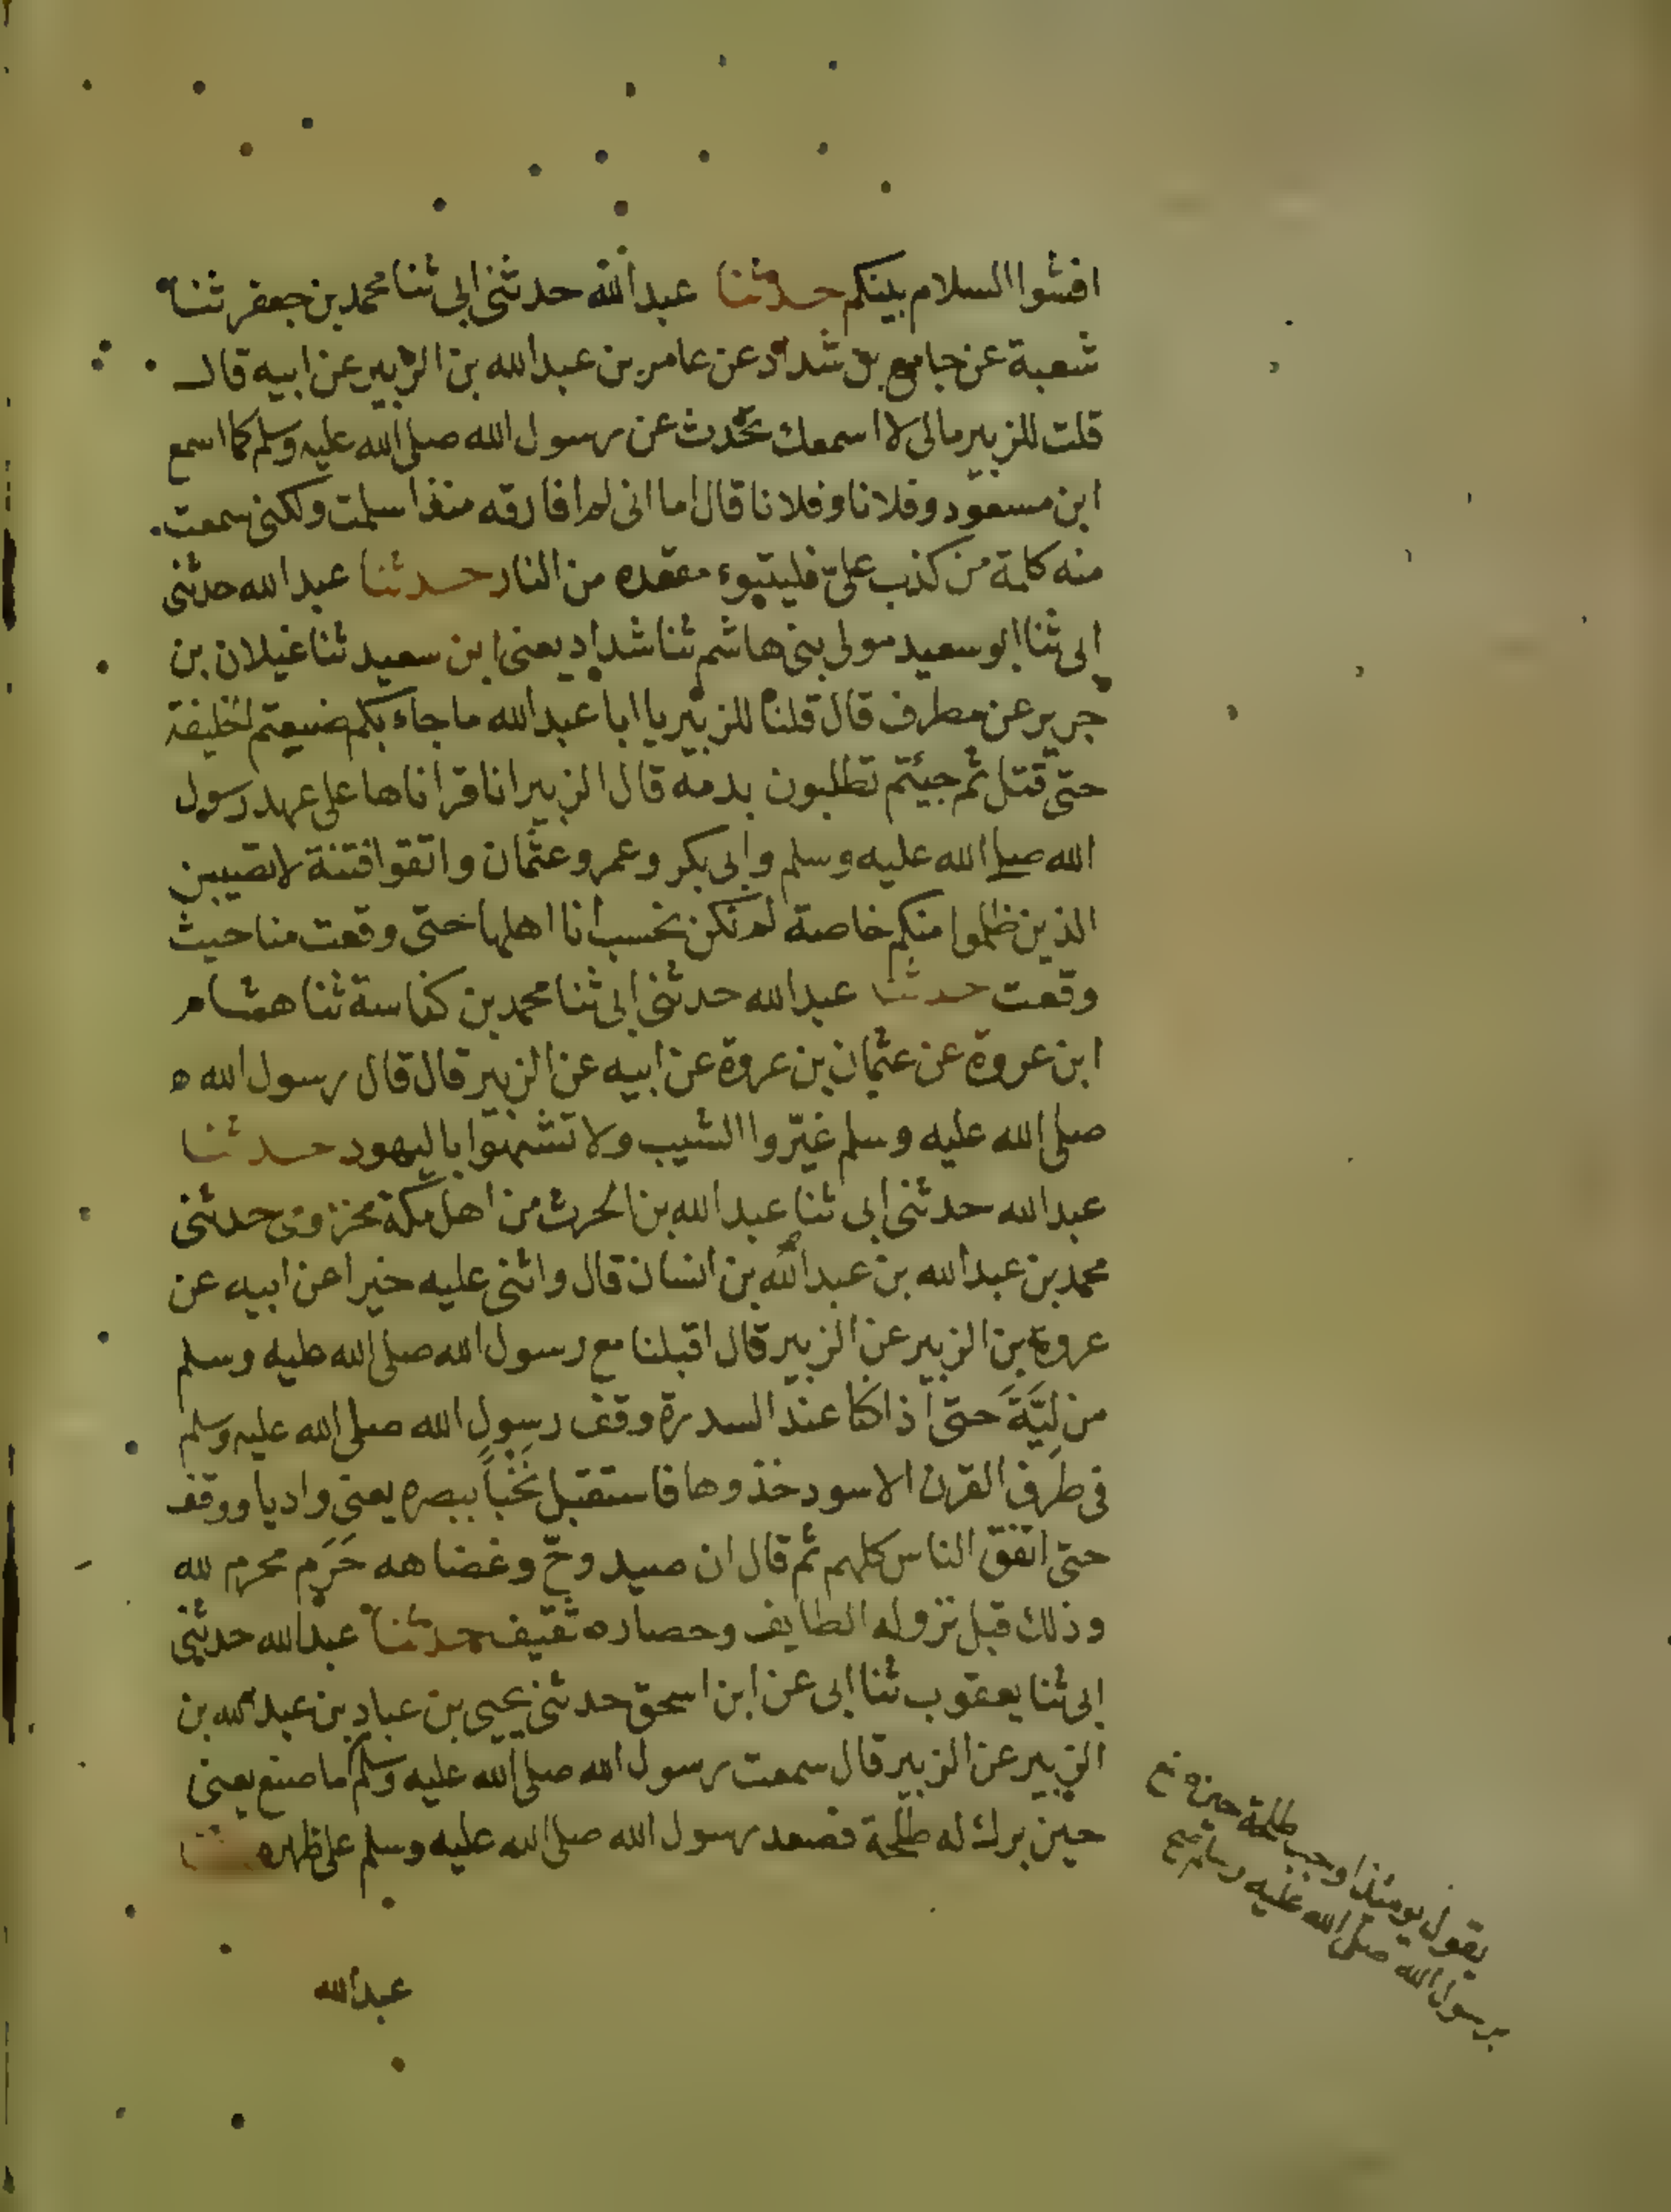 افشوا السلام بينكم حدثنا عبد الله حدثنى ابى ثنا محمد بن جعفر ثنا
شعبة عن جامع بن شداد عن عامر بن عبد الله بن الزبير عن ابيه قال
قلت للزبير مالى لا اسمعك تحدث عن رسول الله صلى الله عليه وسلم كما اسمع
ابن مسعود وفلانا وفلانا قال اما انى لم افارقه منذ اسلمت ولكنى سمعت
منه كلمة من كذب علىّ فليتبوء مقعده من النار حدثنا عبد الله حدثنى
ابى ثنا ابو سعيد مولى بنى هاشم ثنا شداد يعنى ابن سعيد ثنا غيلان بن
جرير عن مطرف قال قلنا للزبير يا ابا عبد الله ما جاء بكم ضيعتم الخليفة
حتى قتل ثم جيئتم تطلبون بدمه قال الزبير انا قراناها على عهد رسول
الله صلى الله عليه وسلم وابى بكر وعمر وعثمان واتقوا فتنة لا تصيبن
الذين ظلموا منكم خاصة لم نكن نحسب انا اهلها حتى وقعت منا حيث
وقعت حدثنا عبد الله حدثنى ابى ثنا محمد بن كناسة ثنا هشام
ابن عروة عن عثمان بن عروة عن ابيه عن الزبير قال قال رسول الله
صلى الله عليه وسلم غيّروا الشيب ولا تشبهوا باليهود حدثنا
عبد الله حدثنى ابى ثنا عبد الله بن الحرث من اهل مكة مخزومى حدثنى
محمد بن عبد الله بن عبد الله بن انسان قال واثنى عليه خيرا عن ابيه عن
عروة بن الزبير عن الزبير قال اقبلنا مع رسول الله صلى الله عليه وسلم
من لِيَّةَ حتى اذا كنا عند السدرة وقف رسول الله صلى الله عليه وسلم
فى طرف القرن الاسود خذوها فاستقبل نَخْباً ببصره يعنى واديا ووقف
حتى اتفق الناس كلهم ثم قال ان صيد وجّ وغضاهه حَرَم محرم لله
وذلك قبل نزوله الطايف وحصاره ثقيف حدثنا عبد الله حدثنى
ابى ثنا يعقوب ثنا ابى عن ابن اسحق حدثنى يحيى بن عباد بن عبد الله بن
الزبير عن الزبير قال سمعت رسول الله صلى الله عليه وسلم ما صنع يعنى
حين برك له طلحة فصعد رسول الله صلى الله عليه وسلم على ظهره
يقول يومئذ اوجب طلحة حين صنع
برسول الله صلى الله عليه وسلم صح
عبد الله